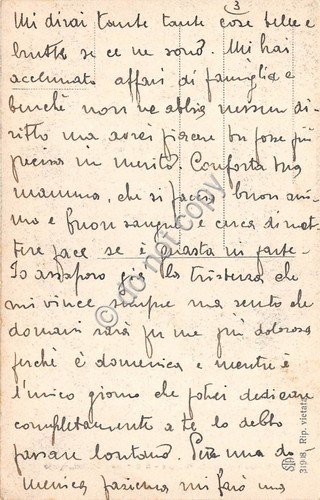 3
Mi dirai tante tante cose belle e
brutte se ce ne sono. Mi hai
accennato affari di famiglia e
benché non ne abbia nessun di-
ritto ma avrei piacere tu fosse più
precisa in merito. Conforta tua
mamma, che si faccia buon ani-
mo e buon sangue e cerca di met-
tere pace se è guasta in parte.
Io assaporo già la tristezza che
mi vince sempre ma sento che
domani sarà per me più dolorosa
perché è domenica e mentre è
l'unico giorno che potrei dedicare
completamente a te lo debbo
passare lontano. Però una do-
menica faremo mi farò una
31908. Rip. vietata
do not copy